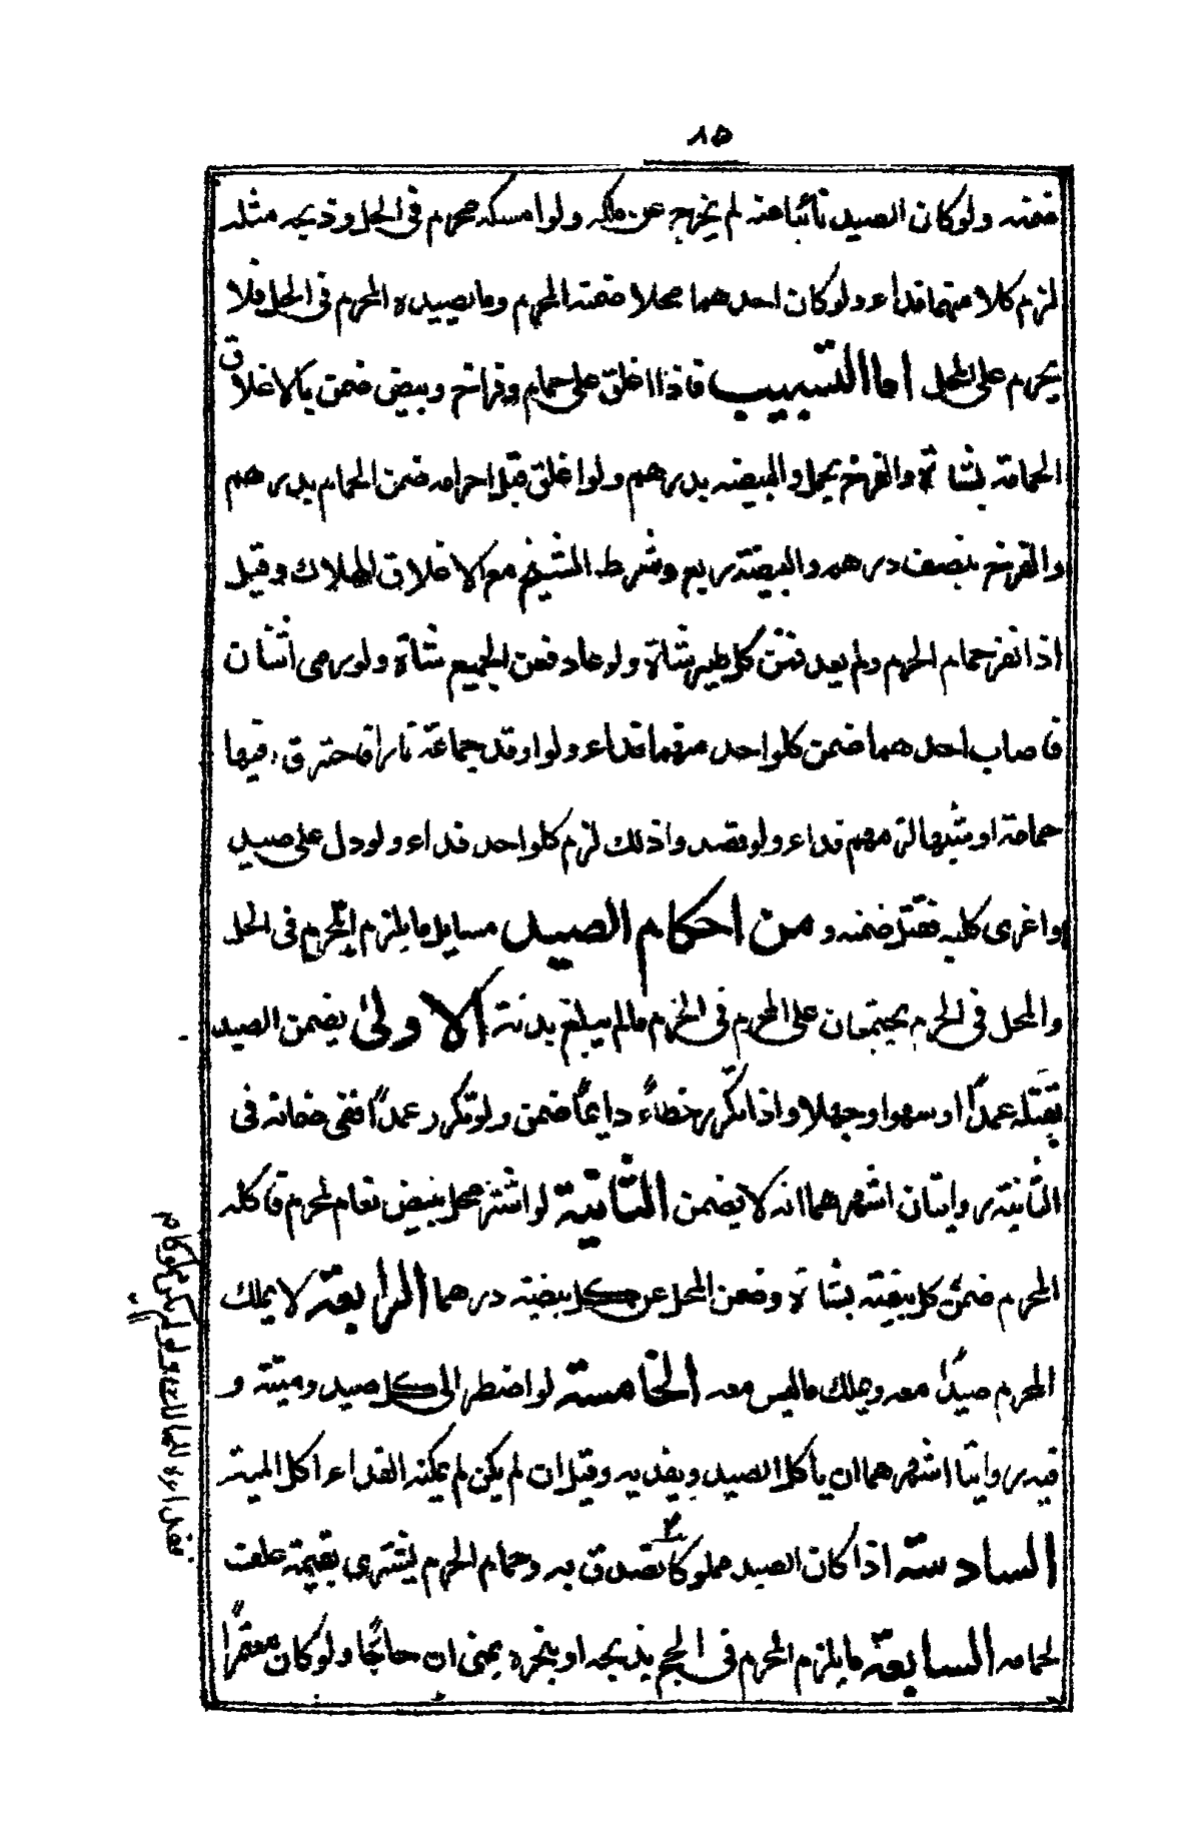 ٨٥
ضمنه ولو كان الصيد نائيا عنه لم يخرج عن ملكه ولو امسكه محرم في الحل وذبحه مثله
لزم كلا منهما فداء ولو كان احدهما محلا ضمنه المحرم وما يصيده المحرم في الحل فلا
يحرم على المحل اما التسبيب فاذا اغلق على حمام وفراخ وبيض ضمن بالاغلاق
الحمامة بشاة والفرخ بحمل والبيضه بدرهم ولو اغلق قبل احرامه ضمن الحمام بدرهم
والفرخ بنصف درهم والبيضة بربع وشرط الشيخ مع الاغلاق الهلاك وقيل
اذا نفر حمام الحرم ولم يعد فعن كل طير شاة ولو عاد فعن الجميع شاة ولو رمى اثنان
فاصاب احدهما ضمن كلواحد منهما فداء ولو اوقد جماعة نارا فاحترق فيها
حمامة او شبهها لزمهم فداء ولو قصدوا ذلك لزم كلواحد فداء ولو دل على صيد
واغرى كلبه فقتل ضمنه و من احكام الصيد مسايل ما يلزم المحرم في الحل
والمحل في الحرم يجتمعان على المحرم في الحرم مالم يبلغ بدنة الاولى يضمن الصيد
بقتله عمدًا او سهوا وجهلا واذا تكرر خطاءً دايمًا ضمن ولو تكرر عمدًا ففي ضمانه في
الثانية روايتان اشهرهما انه لا يضمن الثانية لو اشتر محل بيض نعام لمحرم فاكله
المحرم ضمن كل بيضة بشاة وضمن المحل عن كل بيضة درهما الرابعة لا يملك
المحرم صيدًا معه ويملك ماليس معه الخامسة لو اضطر الى كل صيد وميتة و
فيه روايتا اشهرهما ان ياكل الصيد ويفديه وقيل ان لم يكن لم يمكنه الفداء اكل الميته
السادسة اذا كان الصيد مملوكا تصدق به وحمام الحرم يشترى بقيمته علف
لحمامه السابعة ما يلزم المحرم في الحج يذبحه او ينحره بمنى ان حاجًا ولو كان معتمرًا